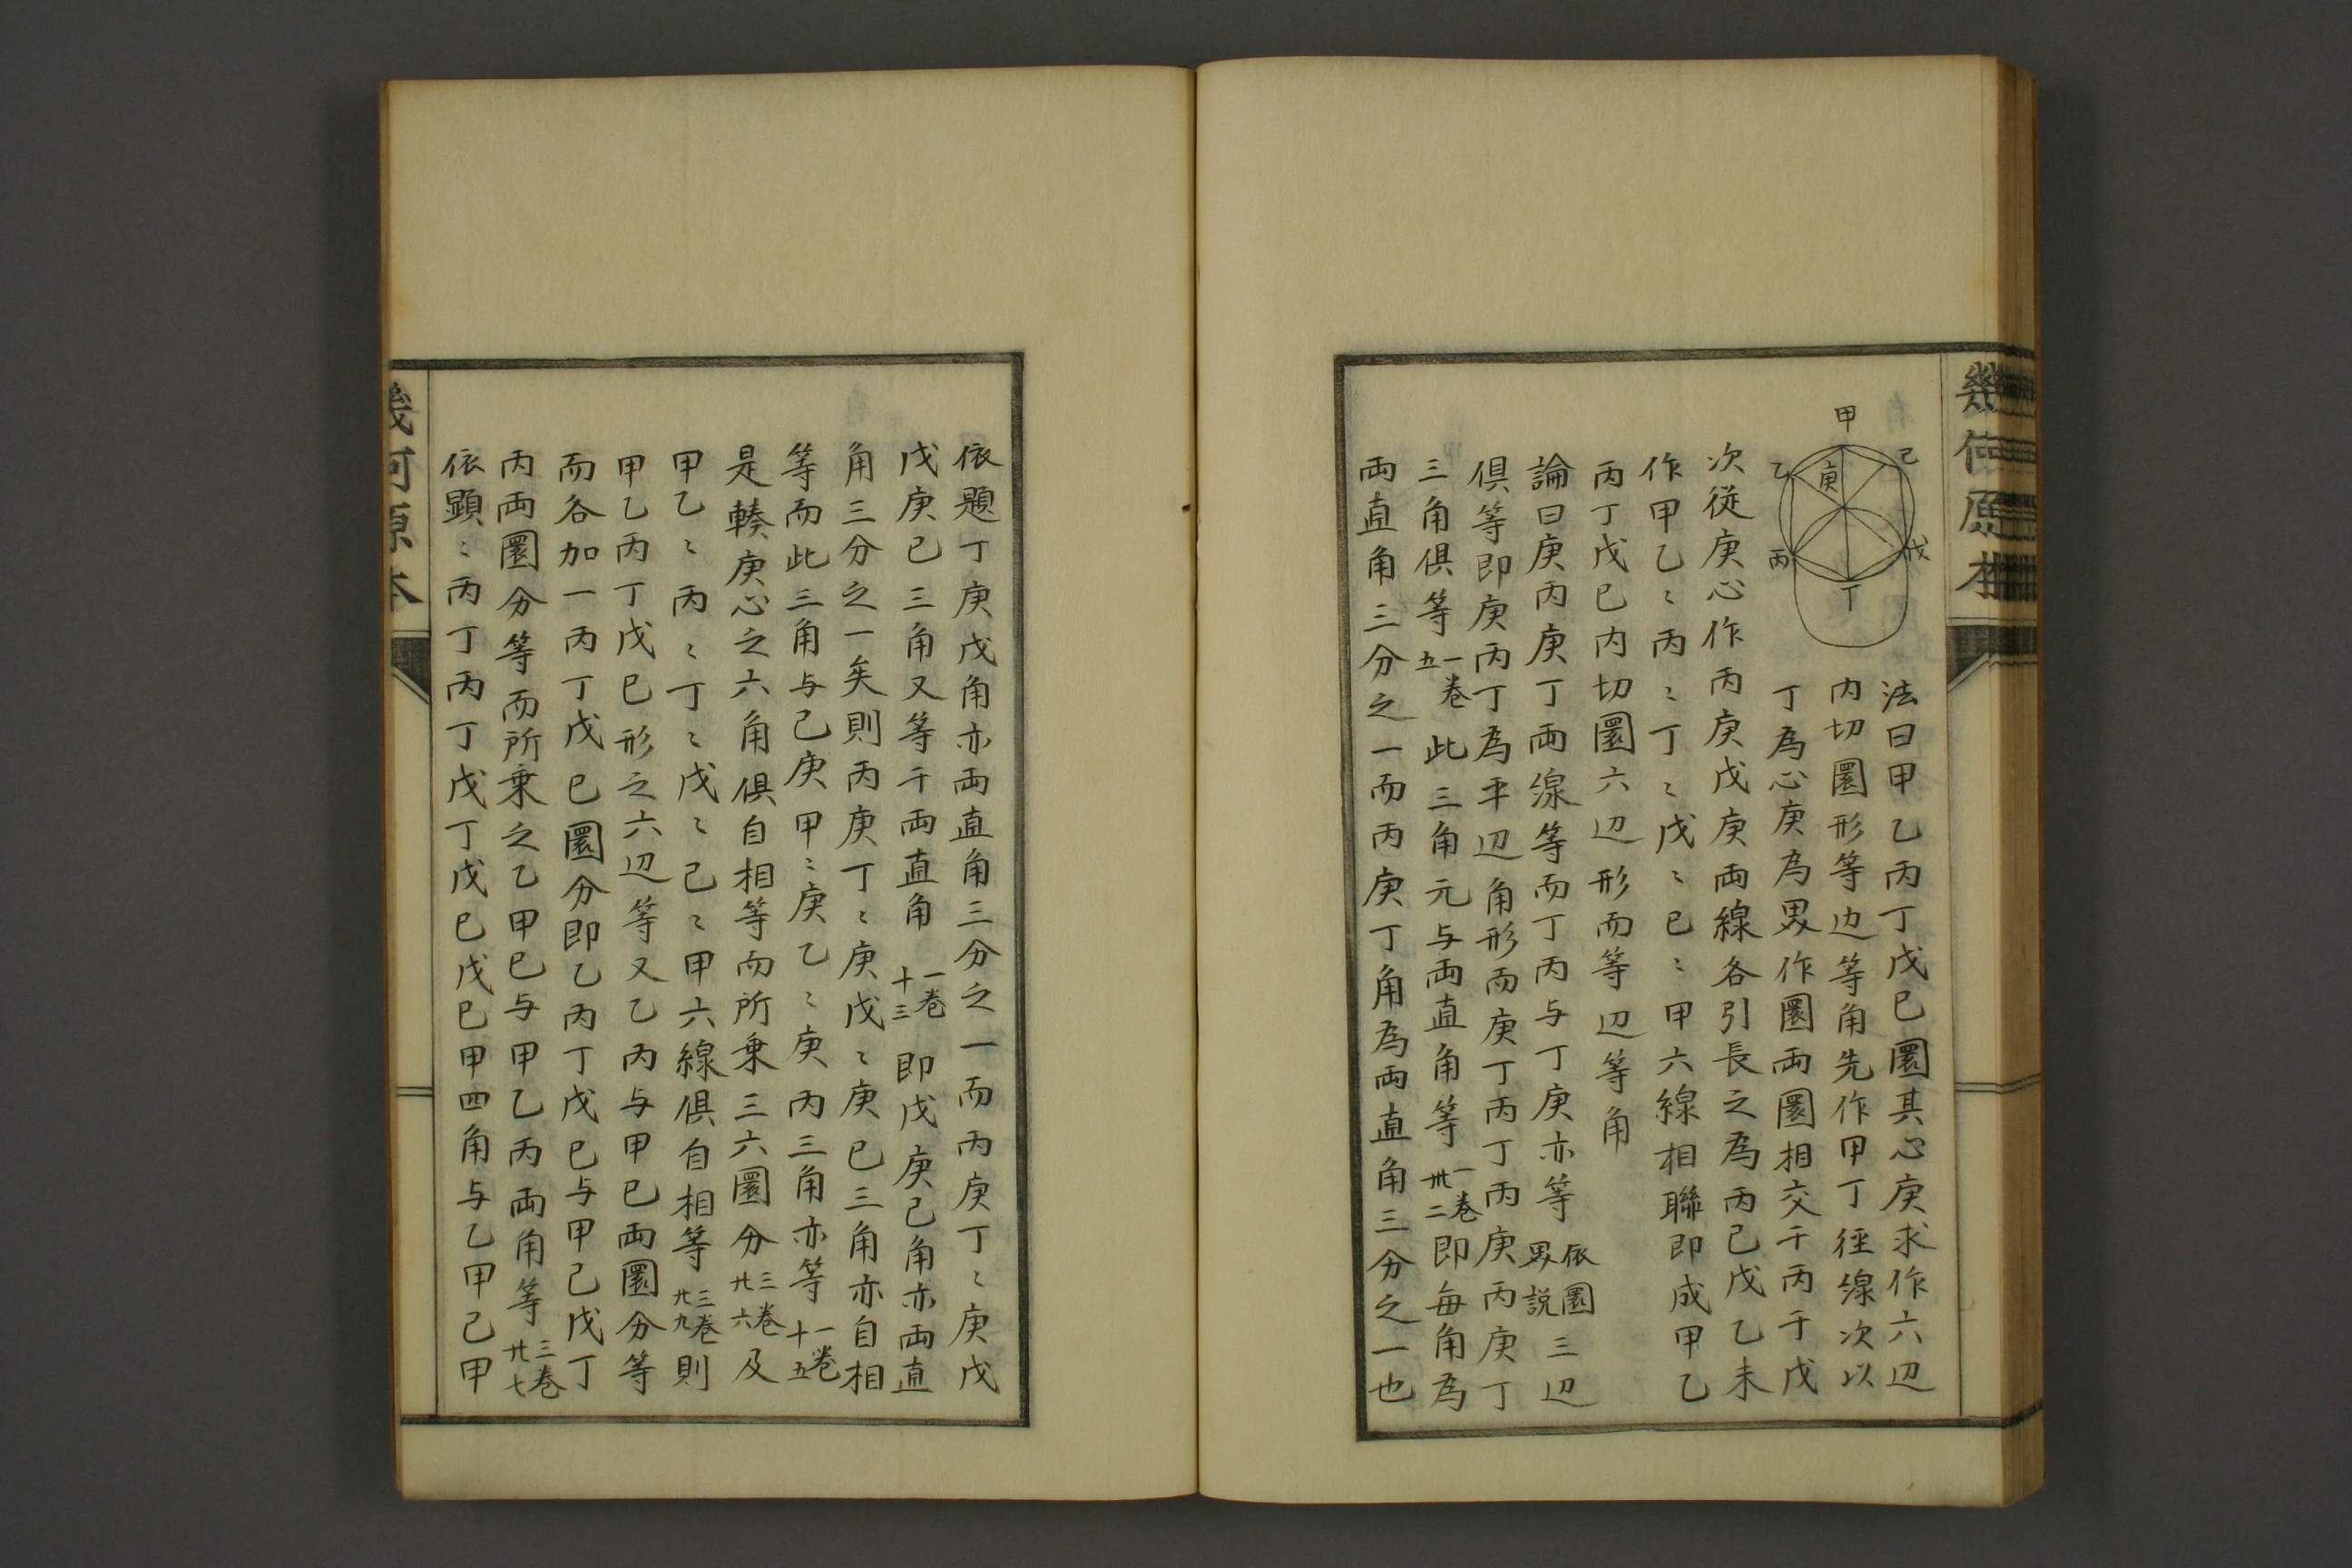 幾何原本
甲
乙
庚
己
丙
戊
丁
法曰甲乙丙丁戊巳圜其心庚求作六辺
内切圜形等边等角先作甲丁徑線次以
丁為心庚為界作圜両圜相交于丙于戊
次從庚心作丙庚戊庚両線各引長之為丙己戊乙末
作甲乙〻丙〻丁〻戊〻巳〻甲六線相聯即成甲乙
丙丁戊巳内切圜六辺形而等辺等角
論曰庚丙庚丁両線等而丁丙与丁庚亦等依圜界説三辺
俱等即庚丙丁為平辺角形而庚丁丙丁丙庚丙庚丁
三角俱等一卷五此三角元与両直角等一卷卅二即每角為
両直角三分之一而丙庚丁角為両直角三分之一也
依題丁庚戊角亦両直角三分之一而丙庚丁〻庚戊
戊庚己三角又等于両直角一卷十三即戊庚己角亦両直
角三分之一矣則丙庚丁〻庚戊〻庚巳三角亦自相
等而此三角与己庚甲〻庚乙〻庚丙三角亦等一卷十五
是輳庚心之六角俱自相等而所乗三六圜分三卷廿六及
甲乙〻丙〻丁〻戊〻己〻甲六線俱自相等三卷廿九則
甲乙丙丁戊巳形之六辺等又乙丙与甲巳両圜分等
而各加一丙丁戊巳圜分即乙丙丁戊巳与甲己戊丁
丙両圜分等而所乗之乙甲巳与甲乙丙両角等三卷廿七
依顕〻丙丁丙丁戊丁戊巳戊巳甲四角与乙甲己甲
幾何原本